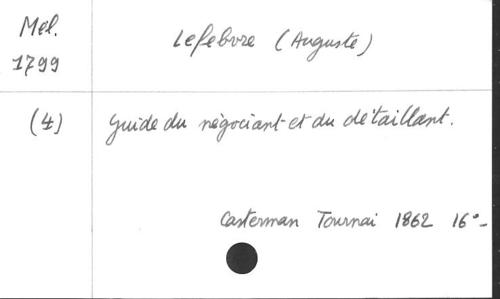 Mél.
1799
Lefebvre (Auguste)
(4)
Guide du négociant et du détaillant.
Casterman Tournai 1862 16°-